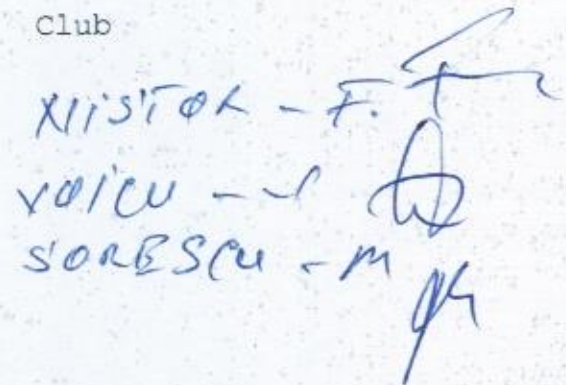 Club
NISTOR - F.
VOICU - 
SORESCU - M